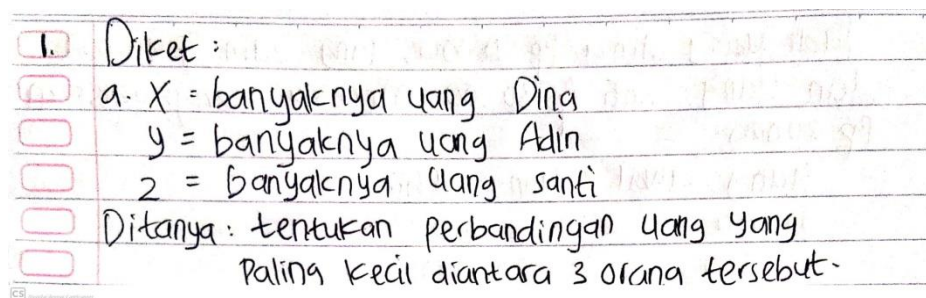 1. Diket :
a. X = banyaknya uang Dina
y = banyaknya uang Adin
z = banyaknya uang santi
Ditanya : tentukan perbandingan uang yang
Paling kecil diantara 3 orang tersebut.
CS